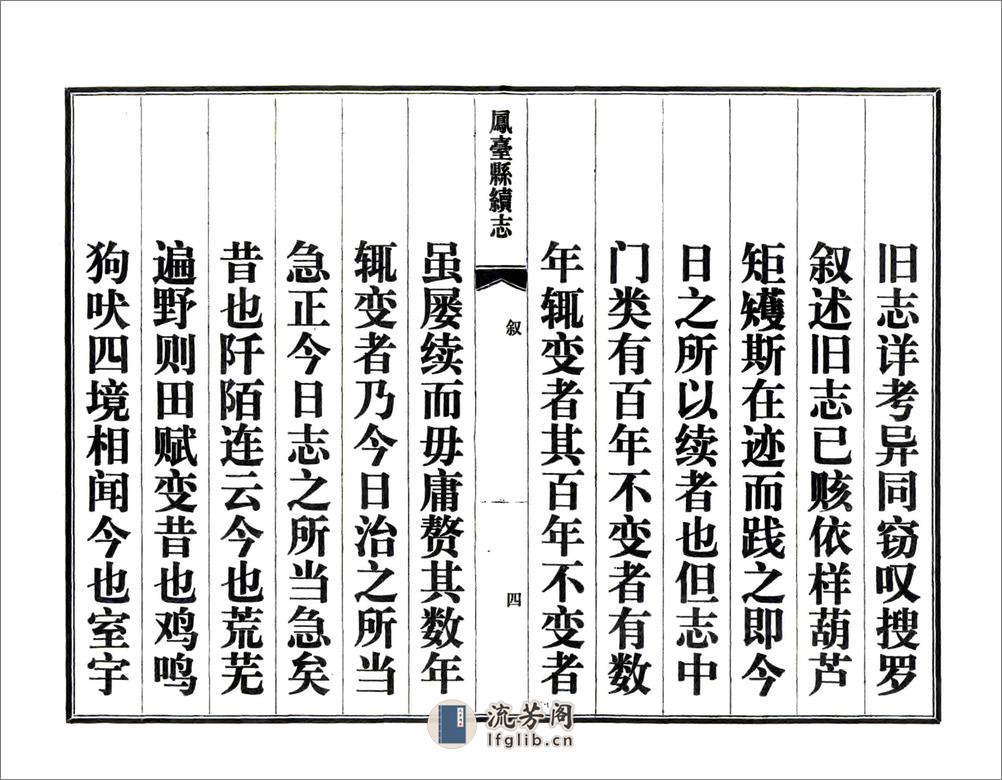 旧志详考异同窃叹搜罗
叙述旧志已赅依样葫芦
矩矱斯在迹而践之即今
日之所以续者也但志中
门类有百年不变者有数
年辄变者其百年不变者
鳳臺縣續志
叙
四
虽屡续而毋庸赘其数年
辄变者乃今日治之所当
急正今日志之所当急矣
昔也阡陌连云今也荒芜
遍野则田赋变昔也鸡鸣
狗吠四境相闻今也室宇
流芳阁
lfglib.cn